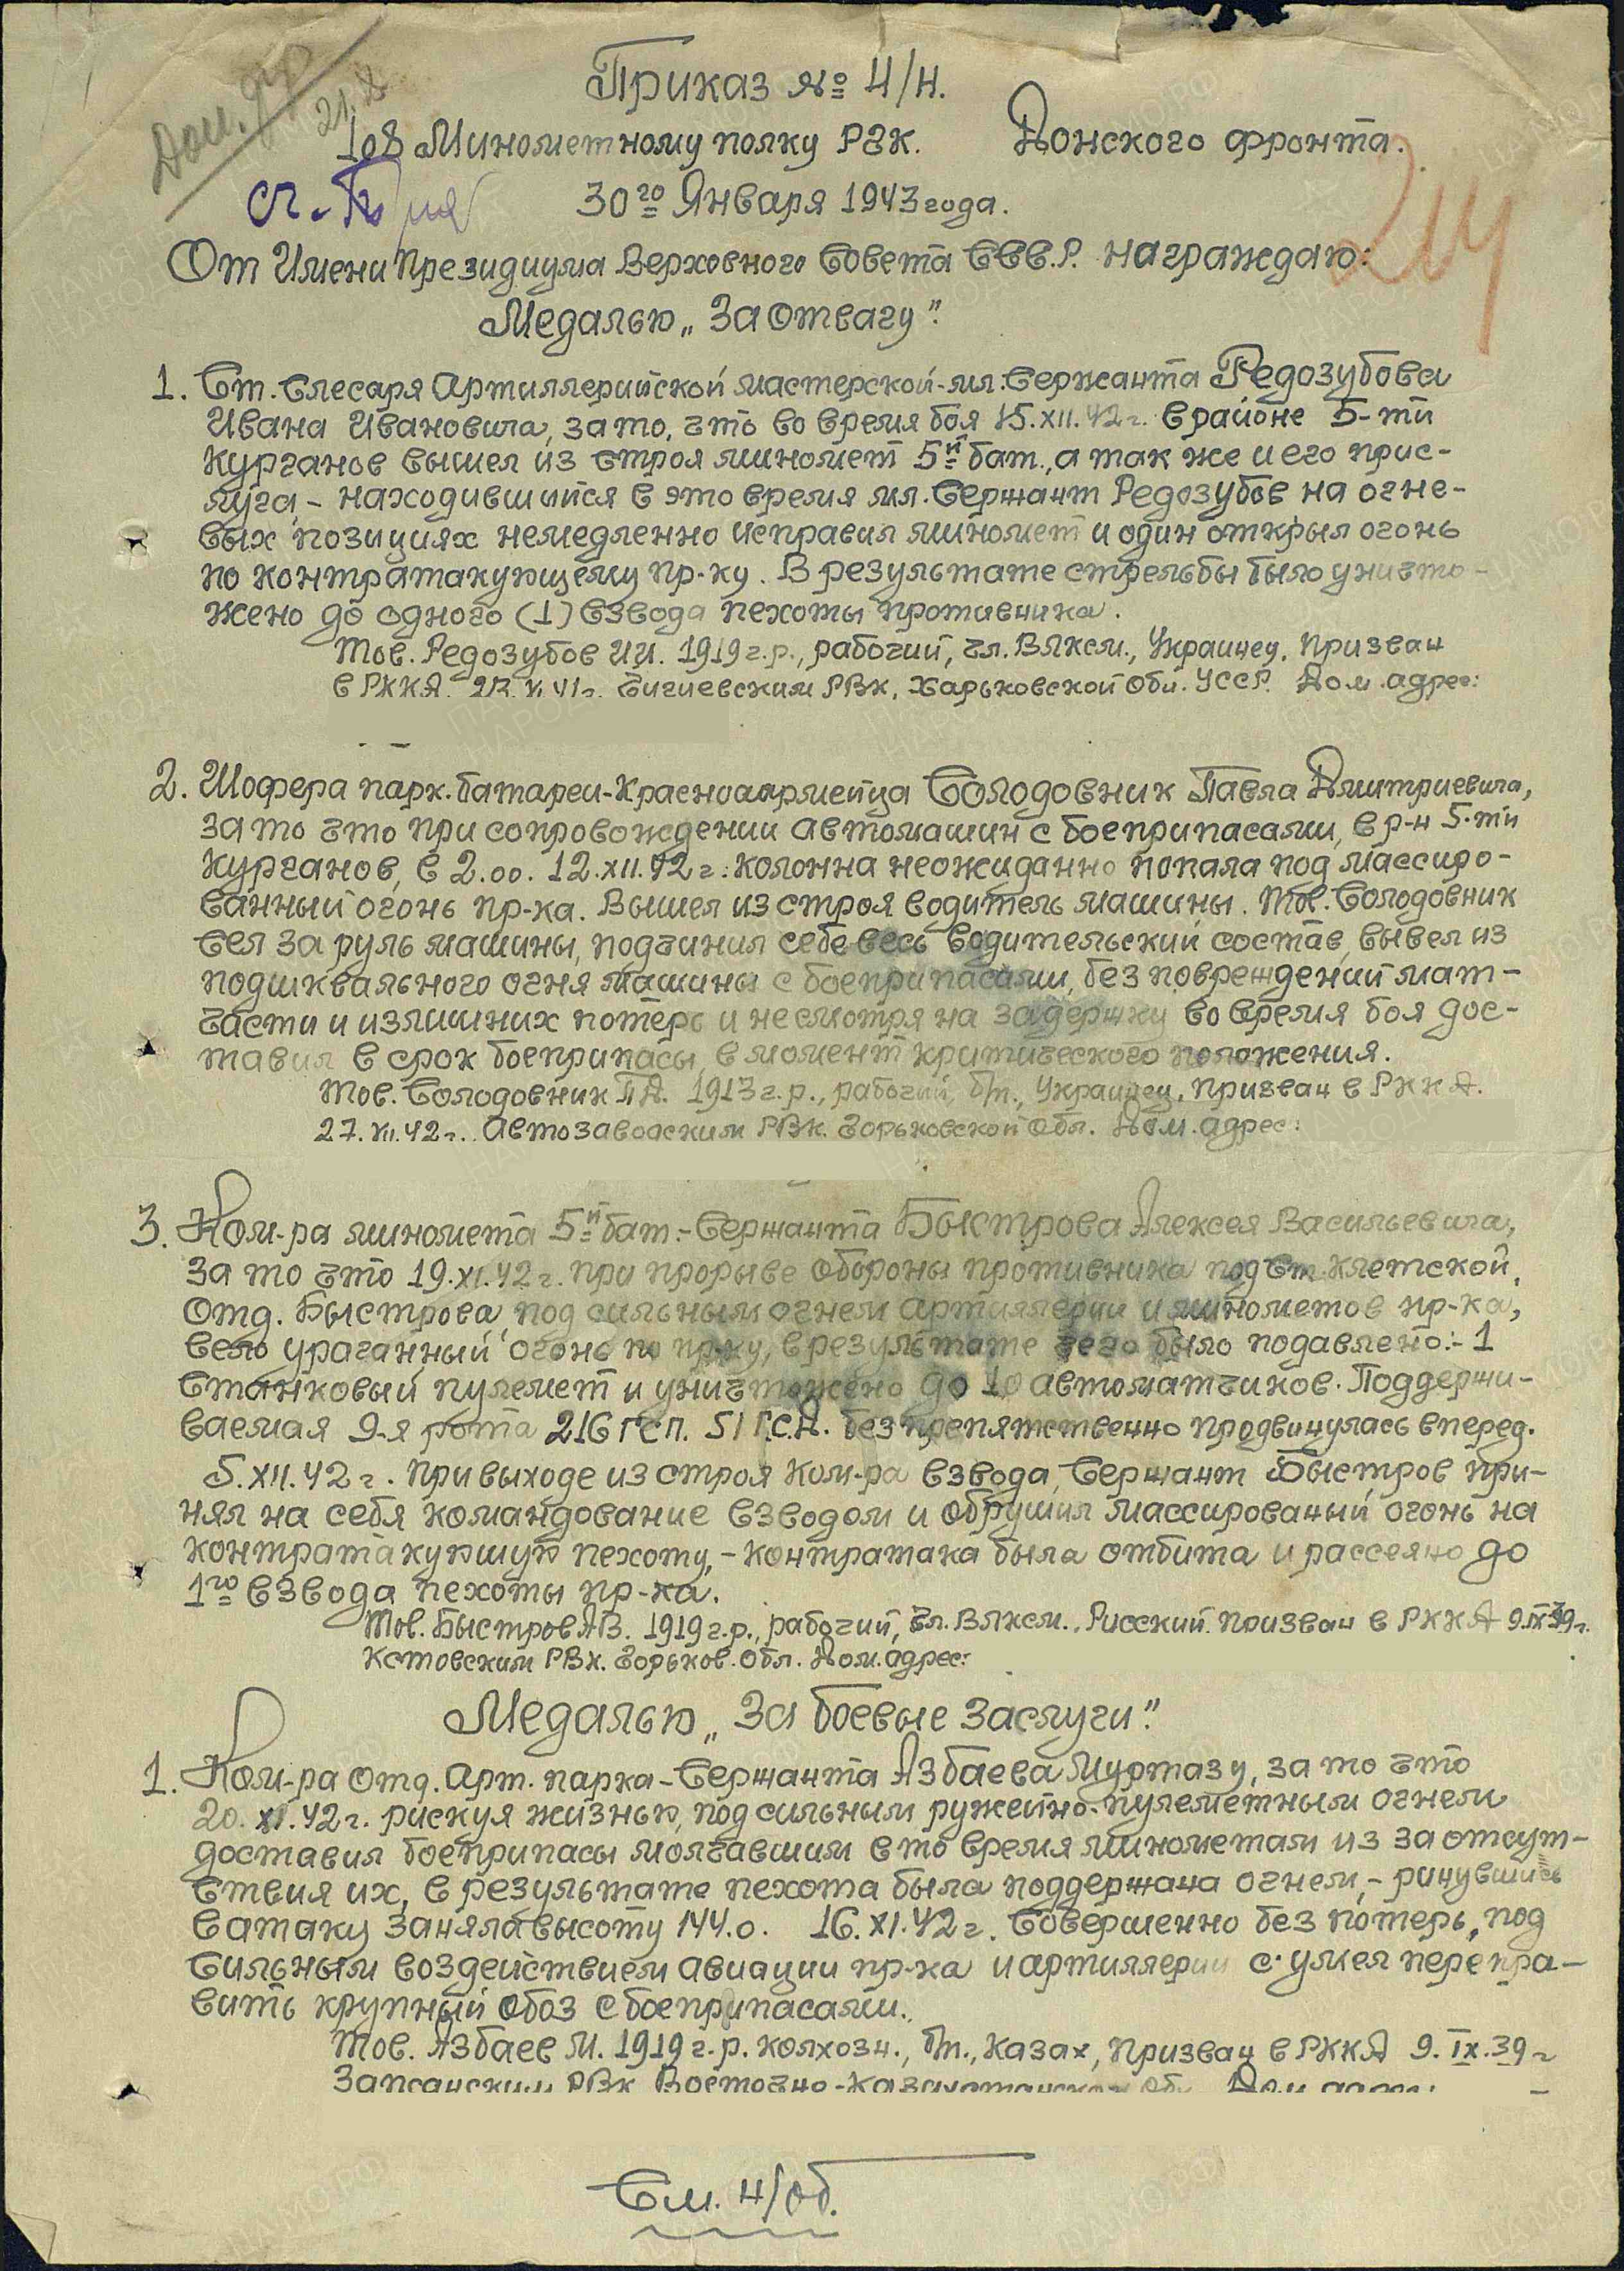 Приказ № 4/н.
108 Минометному полку РГК. Донского фронта.
30го Января 1943 года.
214
От Имени Президиума Верховного Совета ССС.Р. награждаю:
Медалью „За Отвагу".
1. Ст. Слесаря Артиллерийской мастерской-мл. Сержанта Редозубова
Ивана Ивановича, за то, что во время боя 15.XII.42г. в районе 5-ти
Курганов вышел из строя миномет 5й бат., а так же и его прис-
луга – находившийся в это время мл. Сержант Редозубов на огне-
вых позициях немедленно исправил миномет и один открыл огонь
по контратакующему пр-ку. В результате стрельбы было уничто-
жено до одного (1) взвода пехоты противника.
Тов. Редозубов И.И. 1919 г.р., рабочий, чл. ВЛКСМ., Украинец, Призван
в РККА. Чугуевским РВК, Харьковской Обл. УССР. Дом. адрес:
2. Шофера парк. батареи-Красноармейца Солодовник Павла Дмитриевича,
за то что при сопровождении автомашин с боеприпасами, в р-н 5-ти
Курганов, в 2.00. 12.XII.42г: колонна неожиданно попала под массиро-
ванный огонь пр-ка. Вышел из строя водитель машины. Тов. Солодовник
сел за руль машины, подчинил себе весь водительский состав, вывел из
подшквального огня машины с боеприпасами, без повреждений мат-
части и излишних потерь и несмотря на задержку во время боя дос-
тавил в срок боеприпасы в момент критического положения.
Тов. Солодовник П.Д. 1913 г.р., рабочий, б/п., Украинец, Призван в РККА.
27. 42г. Автозаводским РВК. Горьковской Обл. Дом. адрес:
3. Ком-ра миномета 5й бат.-Сержанта Быстрова Алексея Васильевича,
за то что 19.XI.42г. при прорыве Обороны противника под ст. Клетской,
Отд. Быстрова под сильным огнем артиллерии и минометов пр-ка,
вело ураганный огонь по пр-ку, в результате чего было подавлено:- 1
Станковый пулемет и уничтожено до 10 автоматчиков. Поддержи-
ваемая 9-я рота 216 ГСП. 51 Г.С.Д. безпрепятственно продвинулась вперед.
5.XII.42г. При выходе из строя Ком-ра взвода, Сержант Быстров при-
нял на себя командование взводом и обрушил массированый огонь на
контратакующую пехоту, – контратака была отбита и рассеяно до
1го взвода пехоты пр-ка.
Тов. Быстров А.В. 1919 г.р., рабочий, чл. ВЛКСМ., Русский. Призван в РККА 9.IX.39г.
Кстовским РВК. Горьков. Обл. Дом. адрес:
Медалью „За боевые заслуги".
1. Ком-ра Отд. Арт. парка-Сержанта Азбаева Муртазу, за то что
20.XI.42г. рискуя жизнью, под сильным ружейно-пулеметным огнем
доставил боеприпасы молчавшим в то время минометам из за отсут-
ствия их, в результате пехота была поддержана огнем, – ринувшись
в атаку заняла высоту 144.0. 16.XI.42г. Совершенно без потерь, под
Сильным воздействием авиации пр-ка и артиллерии сумел перепра-
вить крупный обоз с боеприпасами.
Тов. Азбаев М. 1919 г.р. колхозн., б/п., казах, Призван в РККА 9.IX.39г
РВК Восточно-Казахстанской Обл. Дом адрес:
См. 4/об.